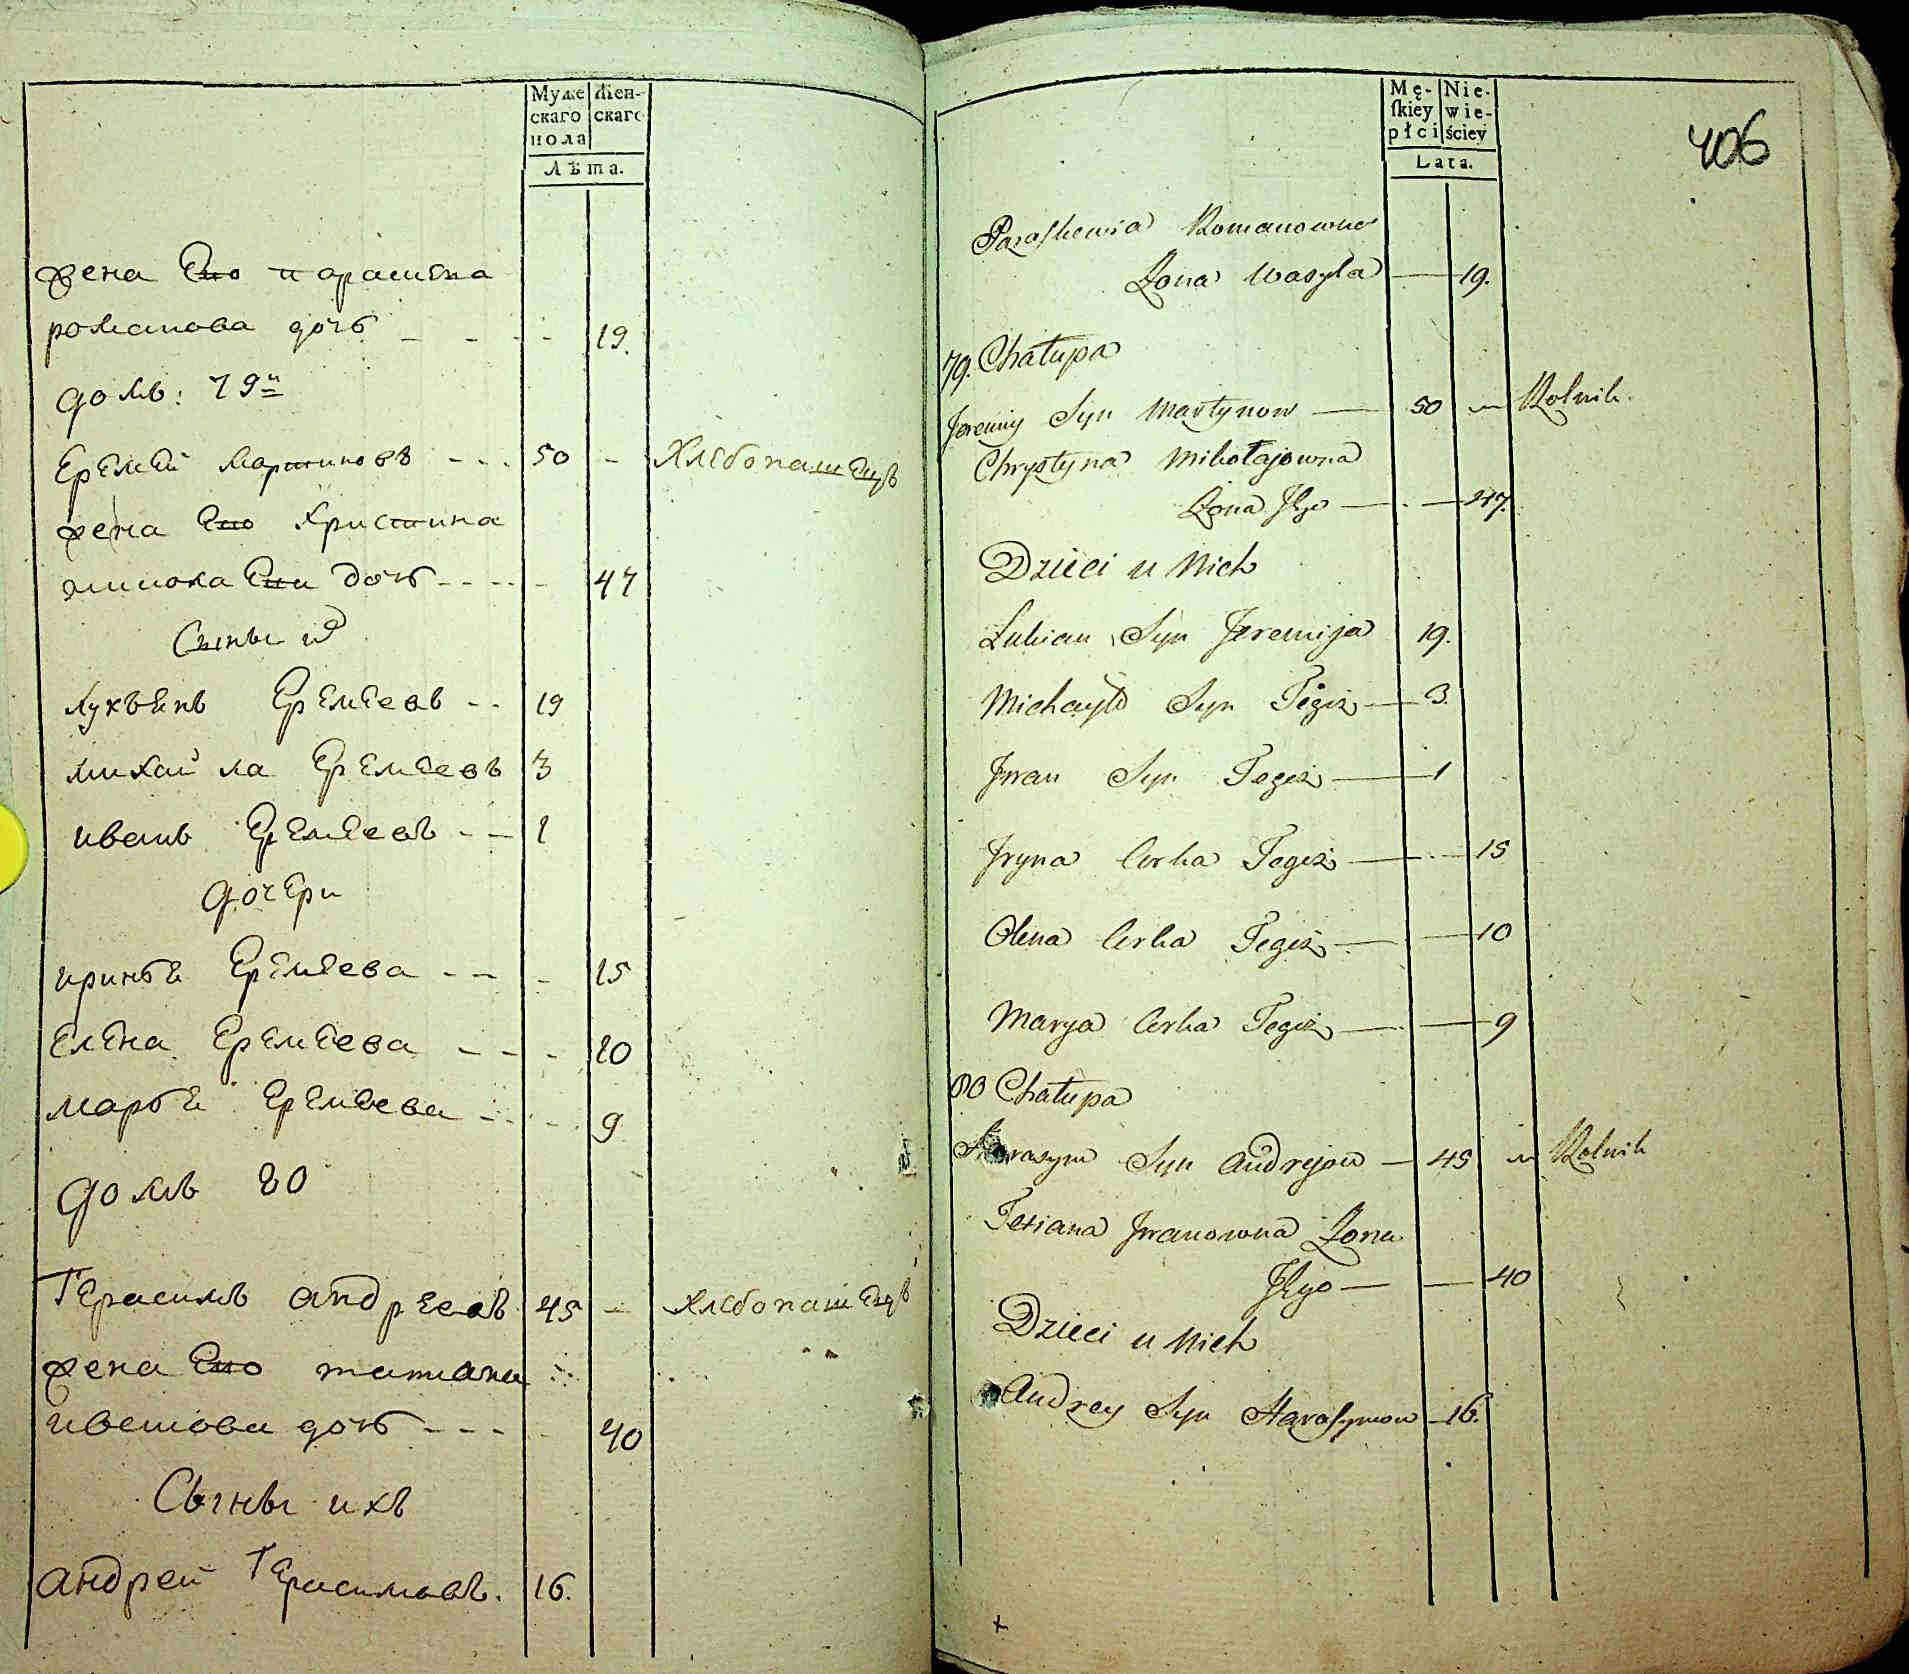 Муже
скаго
пола
Жен-
скаго
Лѣта.
жена Ево парасена
романова дочь - - - 19.
домъ: 79й
Еремей мартиновъ - - - 50 - Хлебопашецъ
жена Ево Христина
миколаеви дочь - - - - 47
Сыны их
лукъенъ Еремеевъ - - 19
михайла Еремеевъ 3
иванъ Еремеевъ - - 1
дочери
иринье Еремеева - - - 15
Елена Еремеева - - - 10
марье Еремеева - - - 9
домъ 80
Герасимъ андреевъ 45 - хлебопашецъ
жена Ево татиана
иванова дочь - - - - 40
Сыны ихъ
андрей Герасимовъ. 16.
Mę-
ſkiey
płci
Nie-
wie-
ściey
Lata.
406
Paraſkewia Romanowna
Żona Wasyla — 19.
79. Chałupa
Jeremiy Syn Martynow — 50 — Rolnik.
Chrystyna Mikołajowna
Żona Jego — — 47.
Dzieci u Nich
Lukian Syn Jeremija 19.
Michayło Syn Tegoż — 3.
Jwan Syn Tegoż — 1
Jryna Corka Tegoż — — 15
Olena Corka Tegoż — — 10
Marya Corka Tegoż — — 9
80 Chałupa
Harasym Syn Andrejow — 45 — Rolnik
Tetiana Jwanowna Żona
Jego — — 40
Dzieci u Nich
Andrey Syn Haraſymow — 16.